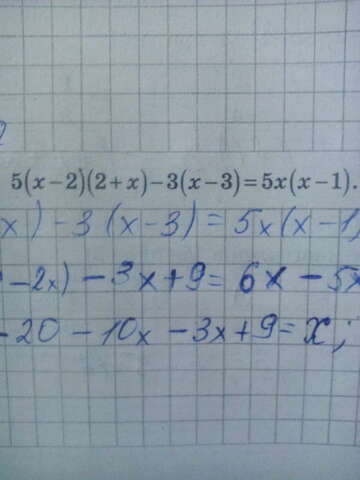 5(x−2)(2+x)−3(x−3)=5x(x−1).
x) − 3 (x − 3) = 5x(x − 1)
− 2x) − 3x + 9 = 6x − 5x
− 20 − 10x − 3x + 9 = x;